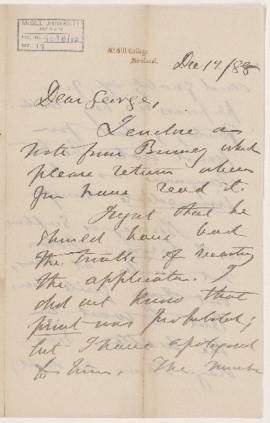 McGILL UNIVERSITY
ARCHIVES
ACC. NO.
REF.
McGill College,
Montreal.
Dec 19/88
Dear George,
I enclose a
note from Binney which
please return when
you have read it.
I regret that he
should have had
the trouble of
the application. I
did not know that
print was prohibited;
but I have apologized
to him. The number